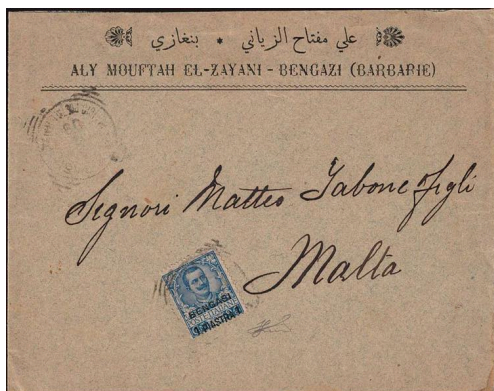 علي مفتاح الزياني * بنغازي
ALY MOUFTAH EL-ZAYANI - BENGAZI (BARBARIE)
Signori Matteo Tabone Figli
Malta
BENGASI
POSTE ITALIANE
1 PIASTRA 1